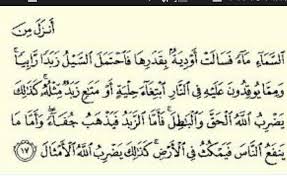 أَنزَلَ مِنَ
ٱلسَّمَآءِ مَآءً فَسَالَتْ أَوْدِيَةٌۢ بِقَدَرِهَا فَٱحْتَمَلَ ٱلسَّيْلُ زَبَدًا رَّابِيًا ۚ
وَمِمَّا يُوقِدُونَ عَلَيْهِ فِى ٱلنَّارِ ٱبْتِغَآءَ حِلْيَةٍ أَوْ مَتَٰعٍ زَبَدٌ مِّثْلُهُۥ ۚ كَذَٰلِكَ
يَضْرِبُ ٱللَّهُ ٱلْحَقَّ وَٱلْبَٰطِلَ ۚ فَأَمَّا ٱلزَّبَدُ فَيَذْهَبُ جُفَآءً ۖ وَأَمَّا مَا
يَنفَعُ ٱلنَّاسَ فَيَمْكُثُ فِى ٱلْأَرْضِ ۚ كَذَٰلِكَ يَضْرِبُ ٱللَّهُ ٱلْأَمْثَالَ ١٧